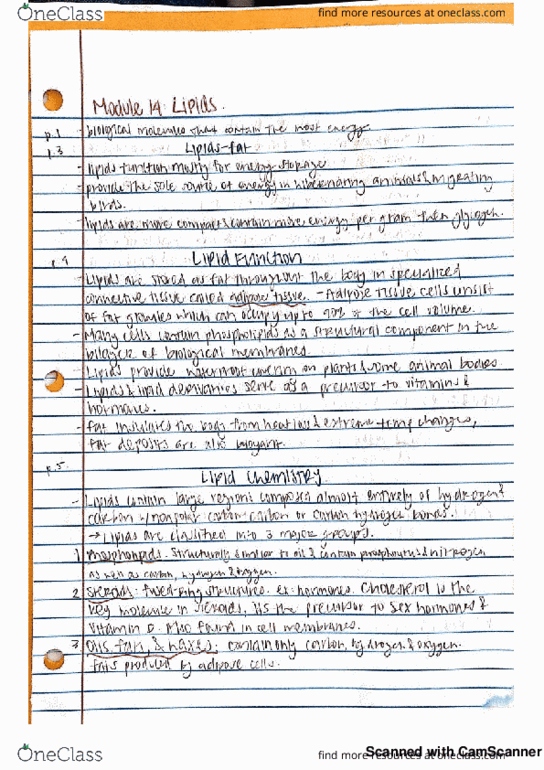 OneClass
find more resources at oneclass.com
Module 14: Lipids.
p.1 - biological molecules that contain the most energy.
p.3 Lipids-fat
- lipids function mostly for energy storage
- provide the sole source of energy in hibernating animals & migrating
birds.
- lipids are more compact & contain more energy per gram then glycogen.
p.4 Lipid Function
- Lipids are stored as fat throughout the body in specialized
connective tissue called adipose tissue. - Adipose tissue cells consist
of fat granules which can occupy up to 90% of the cell volume.
- Many cells contain phospholipids as a structural component in the
bilayer of biological membranes.
- Lipids provide waterproof on plants & some animal bodies
- Lipids & lipid derivatives serve as a precursor to vitamins &
hormones.
- fat insulates the body from heat loss & extreme temp changes,
fat deposits are also buoyant.
p.5.
Lipid Chemistry
- Lipids contain large regions composed almost entirely of hydrogen &
carbon w/ nonpolar carbon-carbon or carbon hydrogen bonds.
→ Lipids are classified into 3 major groups.
1 Phospholipids. Structurally similar to oil & contain phosphourus & nitrogen
as well as carbon, hydrogen & oxygen.
2 Steroids: fused-ring structures. ex: hormones. Cholesterol is the
key molecule in steroids, its the precursor to sex hormones &
Vitamin D. Also found in cell membranes.
3 Oils, fats, & waxes: contain only carbon, hydrogen & oxygen.
fats produced by adipose cells.
OneClass
find more resources at oneclass.com
Scanned with CamScanner